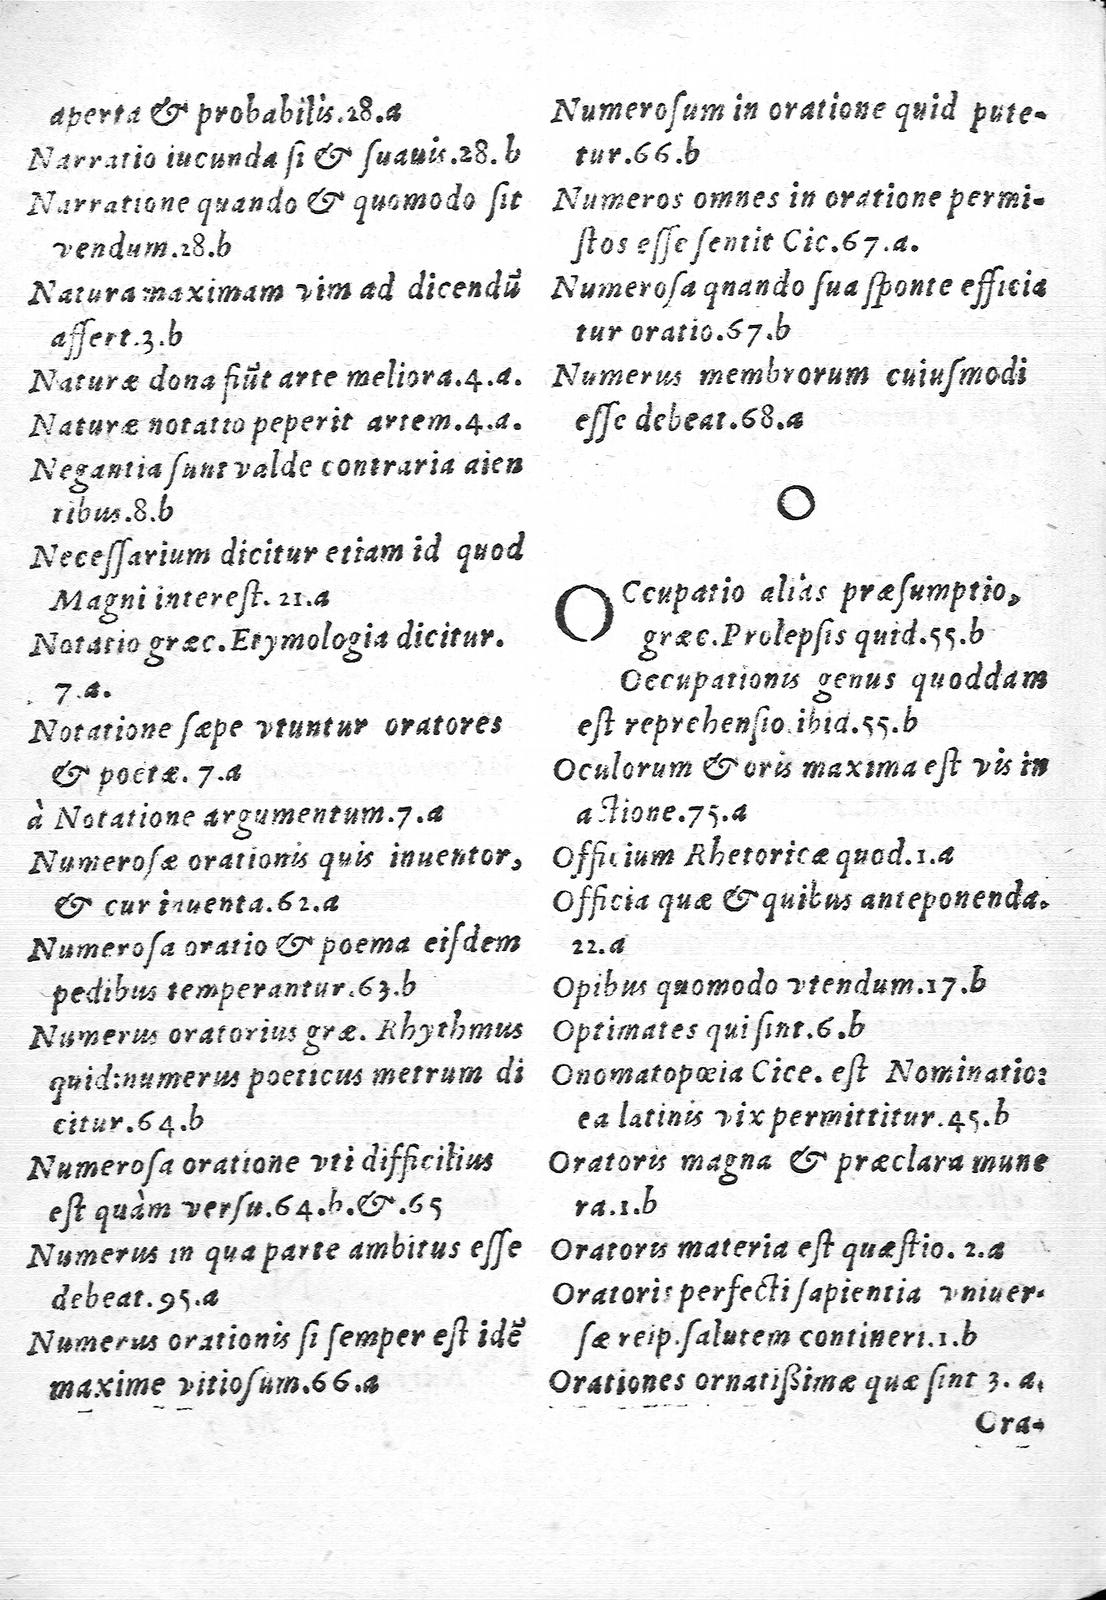 aperta & probabilis.28.a
Narratio iucunda ſi & ſuauis.28.b
Narratione quando & quomodo ſit
vendum.28.b
Natura maximam vim ad dicendū
aſſert.3.b
Naturæ dona fiūt arte meliora.4.a.
Naturæ notatio peperit artem.4.a.
Negantia ſunt valde contraria aien
tibus.8.b
Neceſſarium dicitur etiam id quod
Magni intereſt. 21.a
Notatio græc.Etymologia dicitur.
7.a.
Notatione ſæpe vtuntur oratores
& poetæ. 7.a
à Notatione argumentum.7.a
Numeroſæ orationis quis inuentor,
& cur inuenta.62.a
Numeroſa oratio & poema eiſdem
pedibus temperantur.63.b
Numerus oratorius græ. Rhythmus
quid:numerus poeticus metrum di
citur.64.b
Numeroſa oratione vti difficilius
eſt quàm verſu.64.b.&.65
Numerus in qua parte ambitus eſſe
debeat.95.a
Numerus orationis ſi ſemper eſt idē
maxime vitioſum.66.a
Numeroſum in oratione quid pute-
tur.66.b
Numeros omnes in oratione permi-
ſtos eſſe ſentit Cic.67.a.
Numeroſa qnando ſua ſponte efficia
tur oratio.67.b
Numerus membrorum cuiuſmodi
eſſe debeat.68.a
O
OCcupatio aliàs præſumptio,
græc.Prolepſis quid.55.b
Occupationis genus quoddam
eſt reprehenſio.ibid.55.b
Oculorum & oris maxima eſt vis in
actione.75.a
Officium Rhetoricæ quod.1.a
Officia quæ & quibus anteponenda.
22.a
Opibus quomodo vtendum.17.b
Optimates qui ſint.6.b
Onomatopœia Cice. eſt Nominatio:
ea latinis vix permittitur.45.b
Oratoris magna & præclara mune
ra.1.b
Oratoris materia eſt quæſtio. 2.a
Oratoris perfecti ſapientia vniuer-
ſæ reip.ſalutem contineri.1.b
Orationes ornatißimæ quæ ſint 3. a.
Ora-